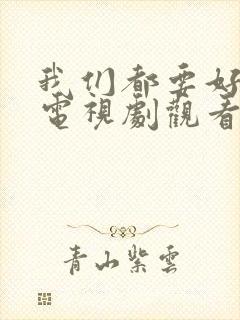 我们都要好
電視劇觀看
青山紫雲